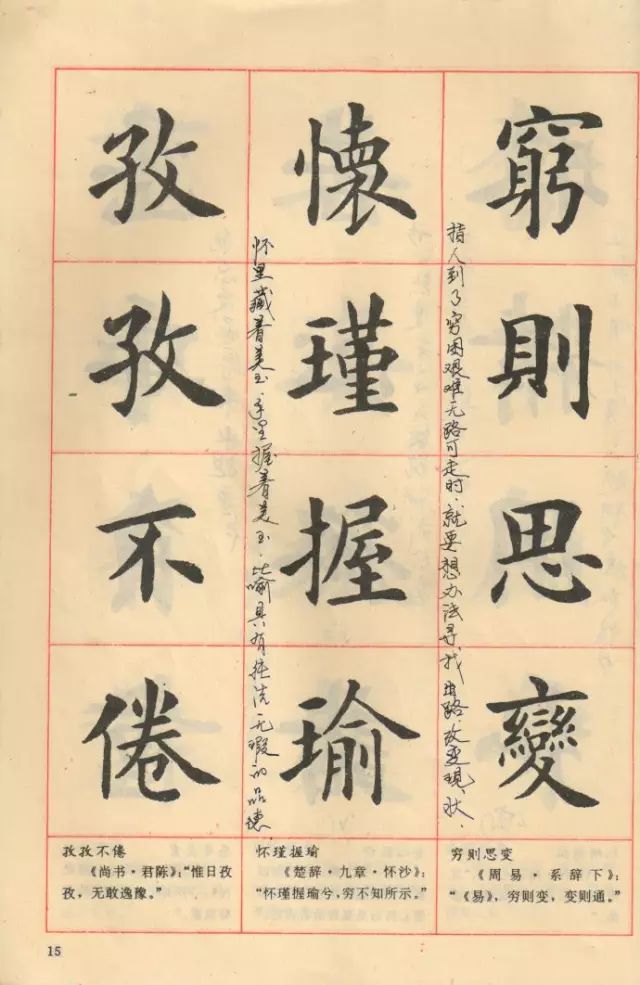 窮則思變
指人到了穷困艰难无路可走时，就要想办法寻找出路，改变现状。
懷瑾握瑜
怀里藏着美玉，手里握着美玉，比喻具有纯洁无瑕的品德。
孜孜不倦
穷则思变
《周易·系辞下》：
“《易》，穷则变，变则通。”
怀瑾握瑜
《楚辞·九章·怀沙》：
“怀瑾握瑜兮，穷不知所示。”
孜孜不倦
《尚书·君陈》：“惟日孜
孜，无敢逸豫。”
15